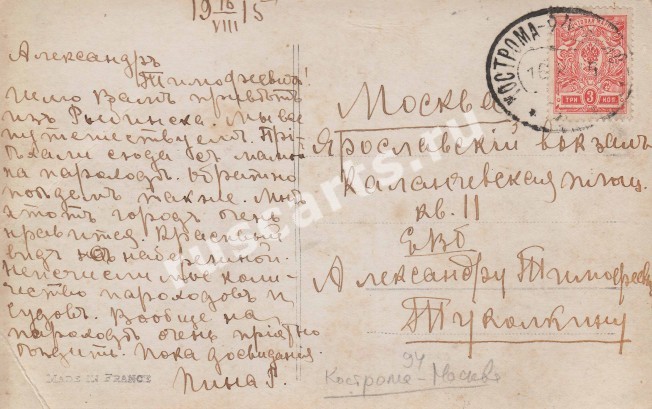 19 16/VIII 15
Александръ
Тимофѣевичъ!
Шлю Вамъ привѣтъ
изъ Рыбинска. Мы все
путешествуемъ. Прі-
ѣхали сюда безъ мамы
на пароходѣ. Обратно
поѣдемъ также. Мнѣ
этотъ городъ очень
нравится. Красивый
видъ на набережной.
Неисчислимое коли-
чество пароходовъ и
судовъ. Вообще на
пароходѣ очень пріятно
ѣздить. Пока досвиданія.
Нина Г.
MADE IN FRANCE
КОСТРОМА
ТРИ 3 КОП
Москва
Ярославскій вокзалъ
Каланчевская площ.
кв. 11
ЕВБ
Александру Тимофеев
Туколкину
94
Кострома - Москва
ruscarts.ru